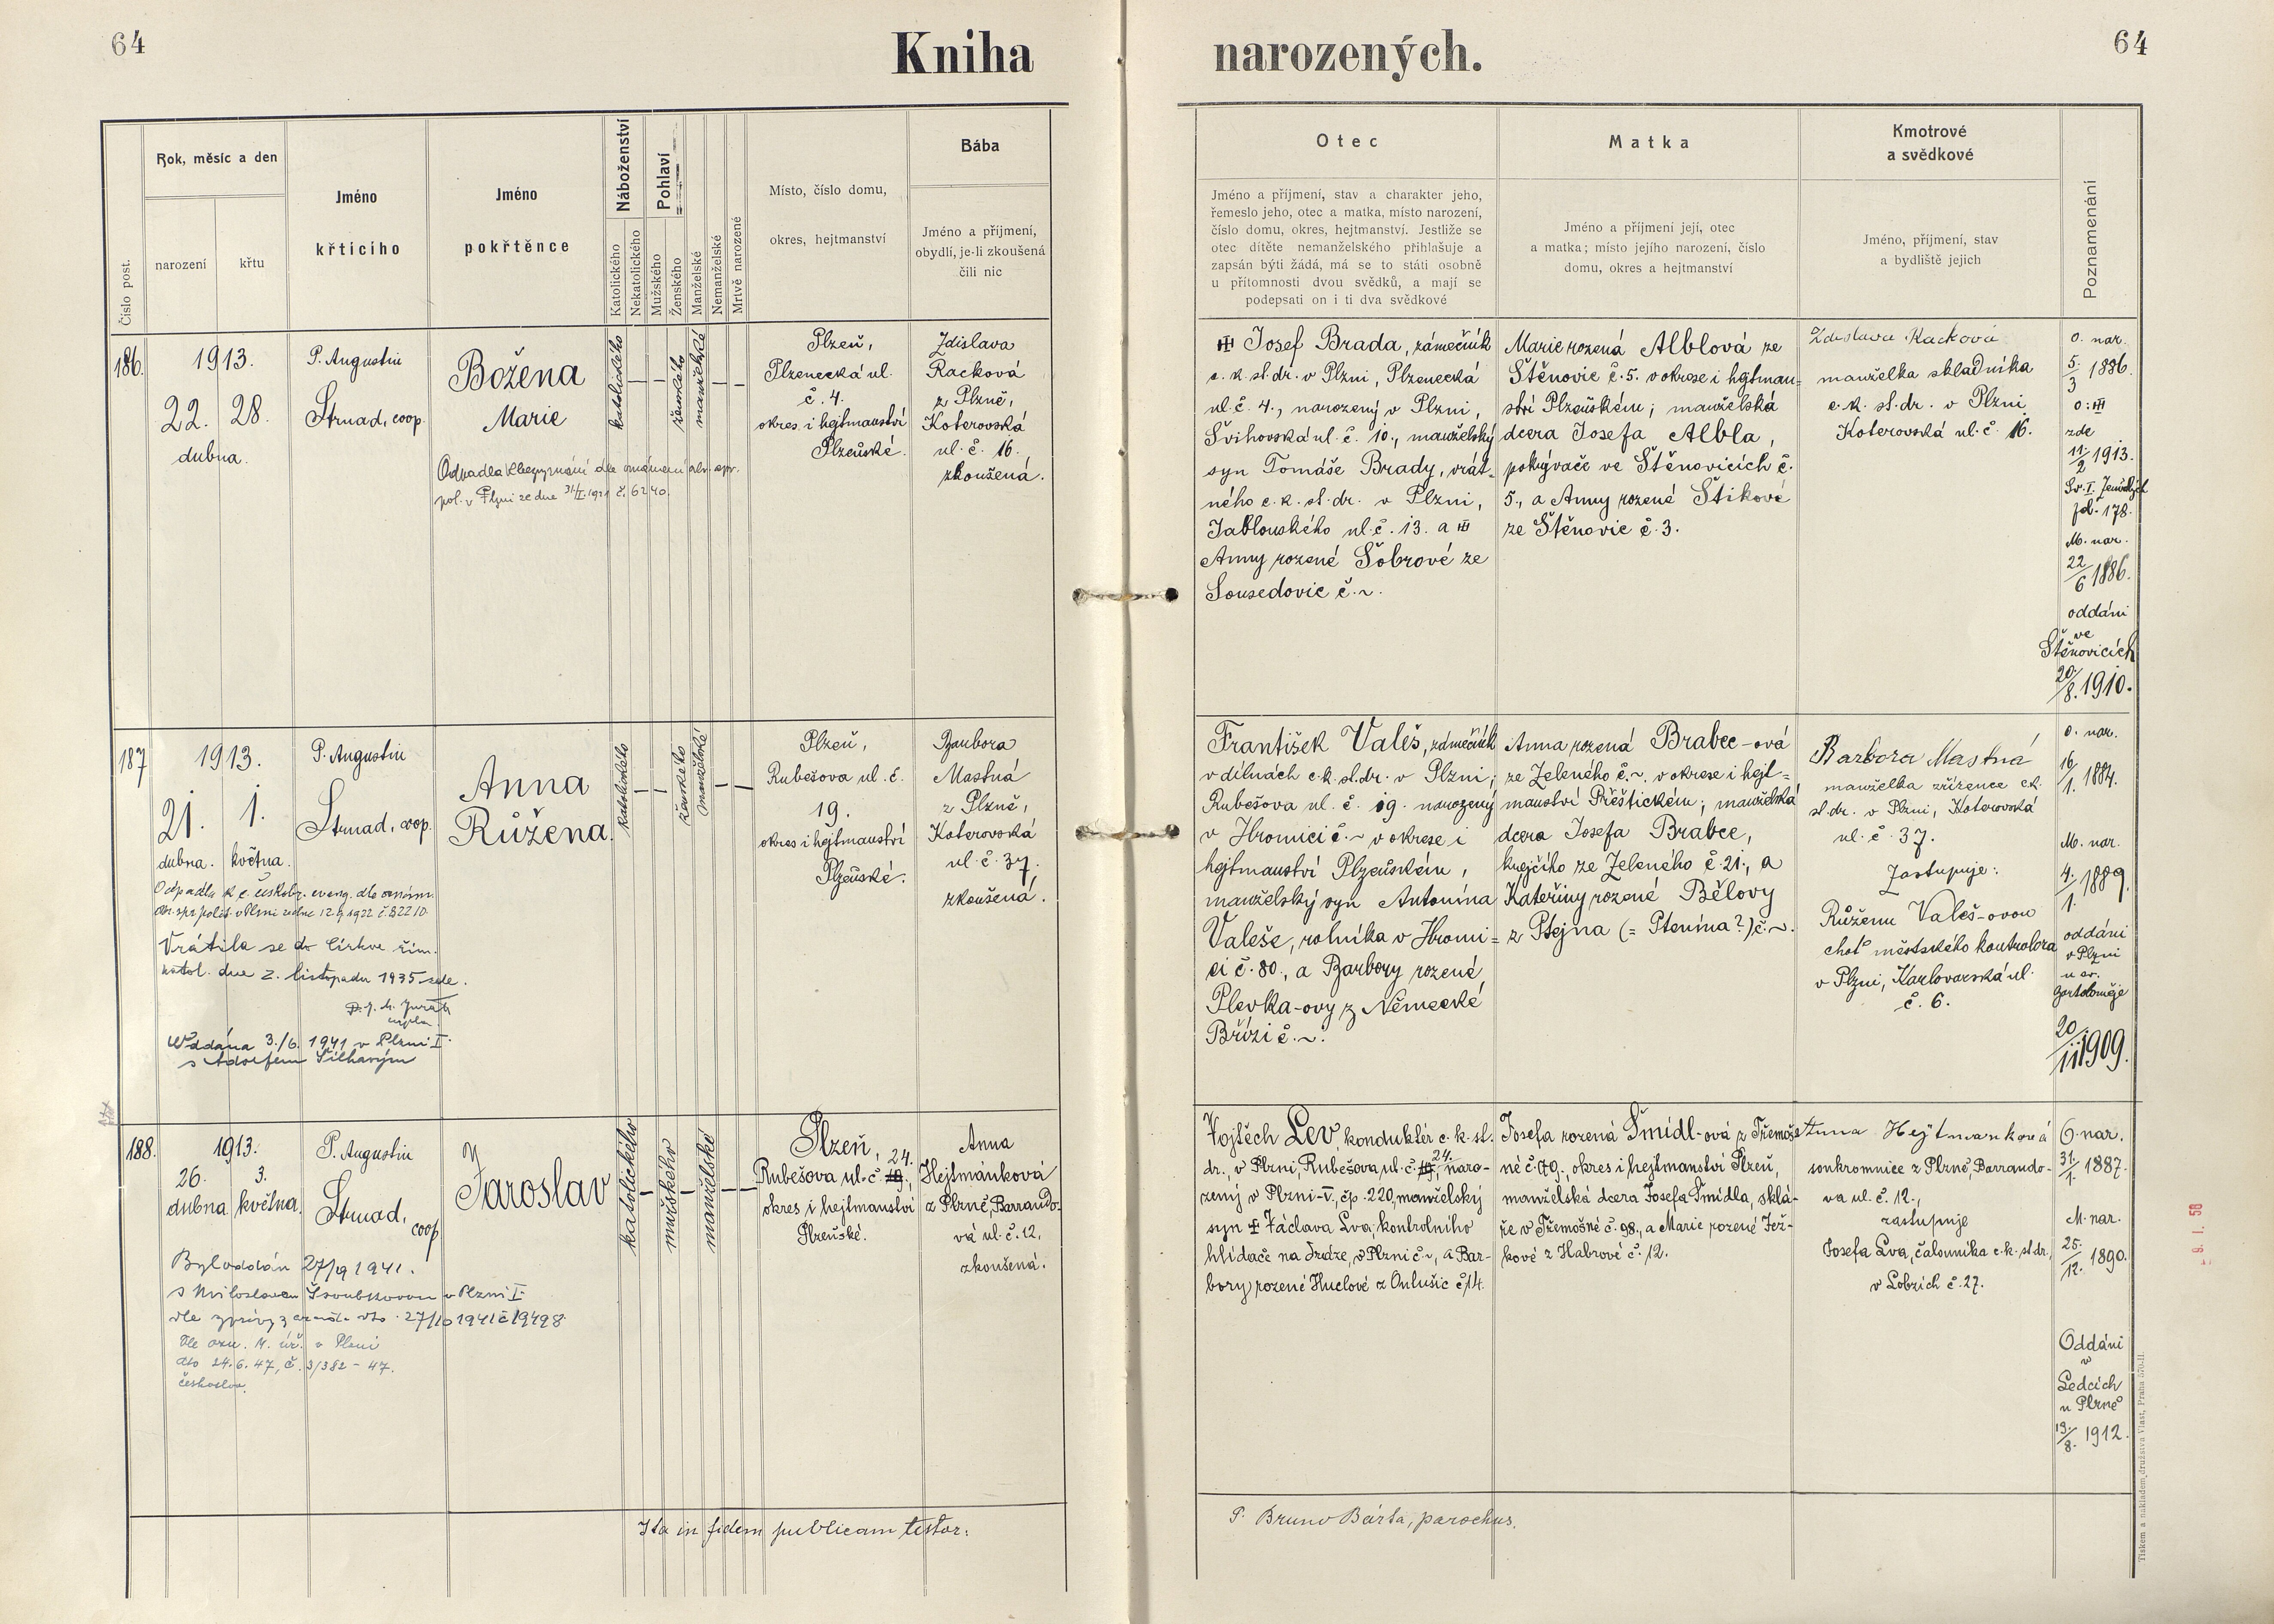 64
Kniha
narozených.
64
Číslo post.
Rok, měsíc a den
narození
křtu
Jméno
křtícího
Jméno
pokřtěnce
Náboženství
Katolického
Nekatolického
Pohlaví
Mužského
Ženského
Manželské
Nemanželské
Mrtvě narozené
Místo, číslo domu,
okres, hejtmanství
Bába
Jméno a příjmení,
obydlí, je-li zkoušená
čili nic
Otec
Jméno a příjmení, stav a charakter jeho,
řemeslo jeho, otec a matka, místo narození,
číslo domu, okres, hejtmanství. Jestliže se
otec dítěte nemanželského přihlašuje a
zapsán býti žádá, má se to státi osobně
u přítomnosti dvou svědků, a mají se
podepsati on i ti dva svědkové
Matka
Jméno a příjmení její, otec
a matka; místo jejího narození, číslo
domu, okres a hejtmanství
Kmotrové
a svědkové
Jméno, příjmení, stav
a bydliště jejich
Poznamenání
186.
1913.
22. 28.
dubna.
P. Augustin
Strnad, coop.
Božena
Marie
katolického
ženského
manželské
Plzeň,
Plzenecká ul.
č. 4.
okres i hejtmanství
Plzeňské.
Zdislava
Racková
z Plzně,
Koterovská
ul. č. 16.
zkoušená.
Odpadla k bezvyznání dle oznámení
pol. v Plzni ze dne 31/I. 1921 č. 6240.
Josef Brada, zámečník
c. k. st. dr. v Plzni, Plzenecká
ul. č. 4., narozený v Plzni,
Švihovská ul. č. 10., manželský
syn Tomáše Brady, vrát-
ného c. k. st. dr. v Plzni,
Jablonského ul. č. 13. a
Anny rozené Šobrové ze
Sousedovic č. ~.
Marie rozená Alblová ze
Štěnovic č. 5. v okrese i hejtman=
ství Plzeňském; manželská
dcera Josefa Albla,
pokrývače ve Štěnovicích č.
5., a Anny rozené Štikové
ze Štěnovic č. 3.
Zdislava Racková
manželka skladníka
c. k. st. dr. v Plzni
Koterovská ul. č. 16.
O. nar.
5/3 1886.
zde
11/2 1913.
M. nar.
22/6 1886.
oddáni
ve
Štěnovicích
20/8. 1910.
187
1913.
21. 1.
dubna. května.
P. Augustin
Strnad, coop.
Anna
Růžena.
katolického
ženského
manželské
Plzeň,
Rubešova ul. č.
19.
okres i hejtmanství
Plzeňské.
Barbora
Mastná
z Plzně,
Koterovská
ul. č. 37.
zkoušená.
Vrátila se do Církve řím.
katol. dne 2. listopadu 1935 zde.
Oddána 3./6. 1941 v Plzni I.
s Adolfem Šilhavým
František Valeš, zámečník
v dílnách c. k. st. dr. v Plzni;
Rubešova ul. č. 19. narozený
v Hromici č. ~ v okrese i
hejtmanství Plzeňském,
manželský syn Antonína
Valeše, rolníka v Hromi=
ci č. 80., a Barbory rozené
Plevka-ovy z Německé
Břízi č. ~.
Anna rozená Brabec-ová
ze Zeleného č. ~. v okrese i hejt=
manství Přeštickém; manželská
dcera Josefa Brabce,
krejčího ze Zeleného č. 21., a
Kateřiny rozené Bělovy
z Ptejna (= Ptenína?) č. ~.
Barbora Mastná
manželka zřízence c. k.
st. dr. v Plzni, Koterovská
ul. č. 37.
Zastupuje:
Růženu Valeš-ovou
choť městského kontrolora
v Plzni, Karlovarská ul.
č. 6.
O. nar.
16/1. 1884.
M. nar.
4./1. 1889.
oddáni
v Plzni
u sv.
Bartoloměje
20/11 1909.
188.
1913.
26. 3.
dubna května.
P. Augustin
Strnad,
coop
Jaroslav
katolického
mužského
manželské
Plzeň,
24.
Rubešova ul. č. 19.,
okres i hejtmanství
Plzeňské.
Anna
Hejtmánková
z Plzně, Barrando-
vá ul. č. 12,
zkoušená.
Byl oddán 27/9 1941.
v Plzni I.
dle zprávy 27/10 1941 č 19498
v Plzni
dto 24. 6. 47, č. 3/382 - 47.
českoslov.
Vojtěch Lev, konduktér c. k. st.
dr., v Plzni, Rubešova ul. č. 19., 24. naro-
zený v Plzni-V., čp. 220, manželský
syn † Václava Lva, kontrolního
hlídače na dráze, v Plzni č ~, a Bar-
bory rozené Huclové z Onušic č. 14.
Josefa rozená Šmídl-ová z Třemoš-
né č. 79., okres i hejtmanství Plzeň,
manželská dcera Josefa Šmídla, sklá-
ře v Třemošné č. 98., a Marie rozené Jež-
kové z Habrové č. 12.
Anna Hejtmanková
soukromnice z Plzně, Barrando-
va ul. č. 12.,
zastupuje
Josefa Lva, čalouníka c. k. st. dr.
v Lobzích č. 27.
O. nar.
31./1. 1887.
M. nar.
25./12. 1890.
Oddáni
v
Ledcích
u Plzně
19./8. 1912.
Ita in fidem publicam testor:
P. Bruno Bárta, parochus.
Tiskem a nákladem družstva Vlast, Praha 570-II.